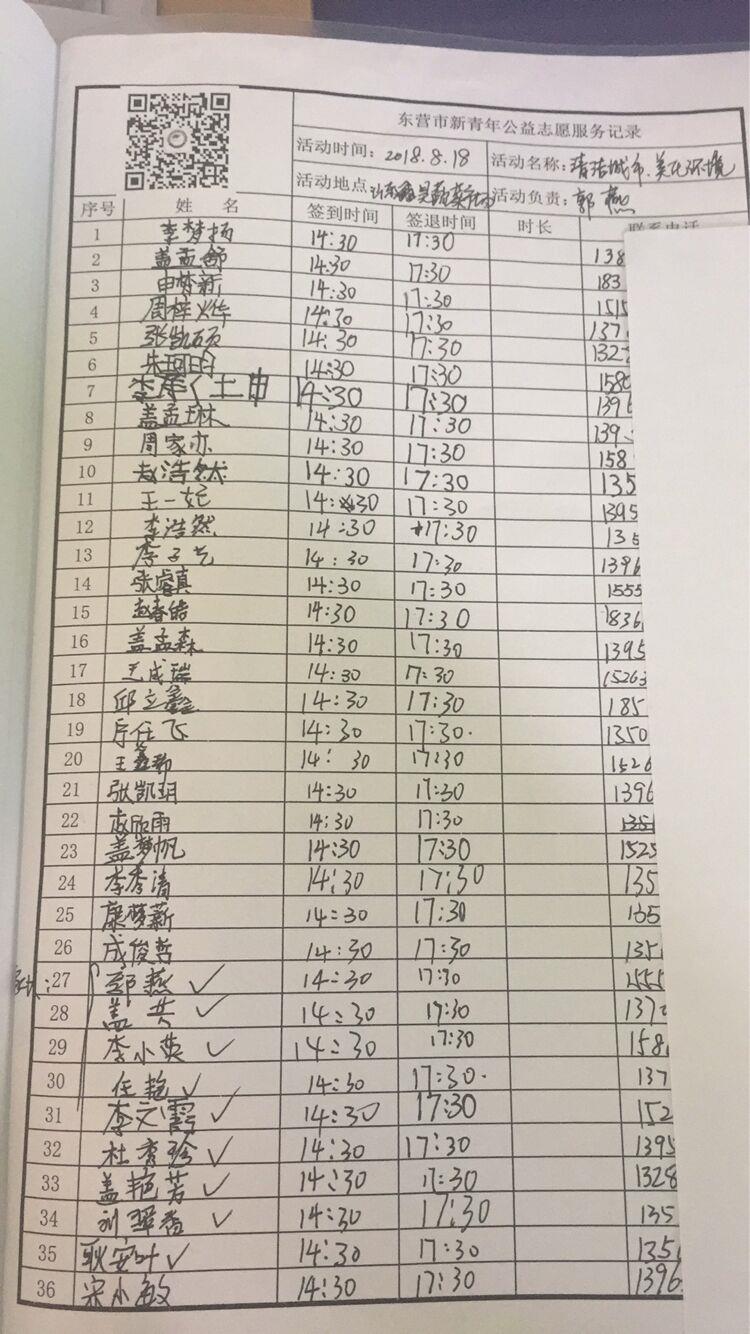 东营市新青年公益志愿服务记录
活动时间：2018.8.18 活动名称：清洁城市、美化环境
活动地点 活动负责：郭燕
序号 姓名 签到时间 签退时间 时长 联系电话
1 李梦扬 14:30 17:30 138
2 盖孟舒 14:30 17:30 183
3 申梦新 14:30 17:30 1515
4 周梓烨 14:30 17:30 137
5 张凯硕 14:30 17:30 1322
6 14:30 17:30 1580
7 14:30 17:30 1396
8 盖孟琳 14:30 17:30 139
9 周家亦 14:30 17:30 158
10 赵浩然 14:30 17:30 135
11 王一妃 14:30 17:30 1395
12 李浩然 14:30 17:30 135
13 李子艺 14:30 17:30 1396
14 张睿真 14:30 17:30 1555
15 赵春皓 14:30 17:30 1836
16 盖孟森 14:30 17:30 1395
17 王成瑞 14:30 17:30 15263
18 邱立鑫 14:30 17:30 185
19 任飞 14:30 17:30 1350
20 王 14:30 17:30 1526
21 张凯玥 14:30 17:30 1396
22 欣雨 14:30 17:30 1351
23 盖梦帆 14:30 17:30 1525
24 李秀清 14:30 17:30 135
25 康梦薪 14:30 17:30 135
26 成俊哲 14:30 17:30 135
27 郭燕 ✓ 14:30 17:30 1555
28 盖共 ✓ 14:30 17:30 137
29 李小英 ✓ 14:30 17:30 158
30 任艳 ✓ 14:30 17:30 137
31 李文霞 ✓ 14:30 17:30 152
32 杜秀珍 ✓ 14:30 17:30 1395
33 盖艳芳 ✓ 14:30 17:30 1328
34 刘翠香 ✓ 14:30 17:30 135
35 耿安叶 ✓ 14:30 17:30 135
36 宋小敏 14:30 17:30 1396